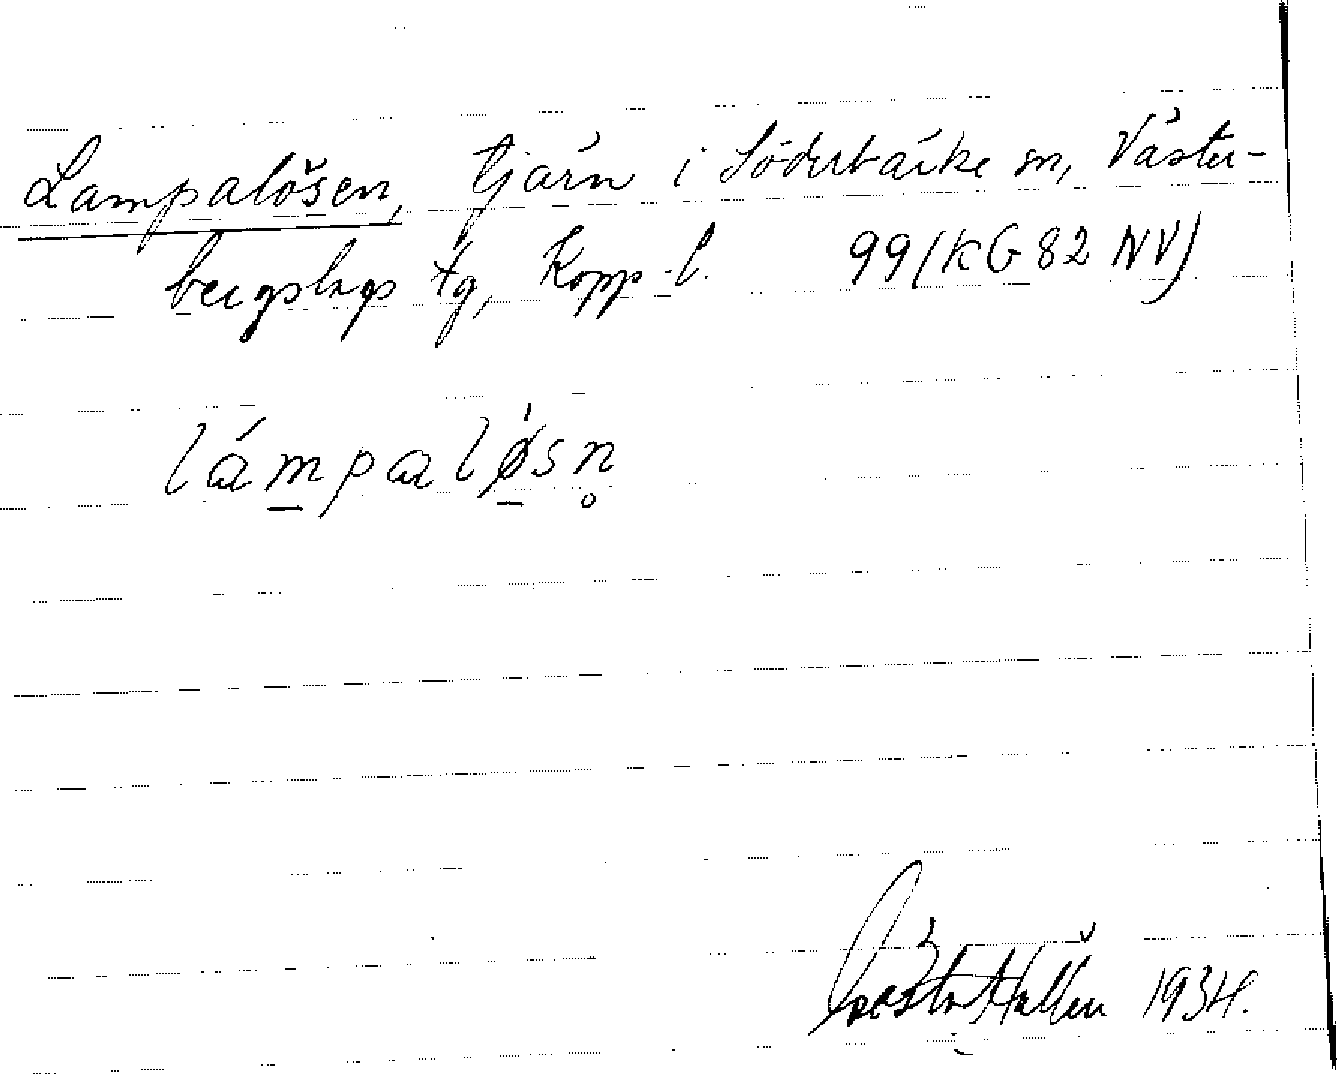 Lampalösen, tjärn i Söderbärke sn, Väster-
bergslags tg, Kopp. l. 99 (KG 82 NV)
lámpaløsn̥
Gösta Hallén 1934.